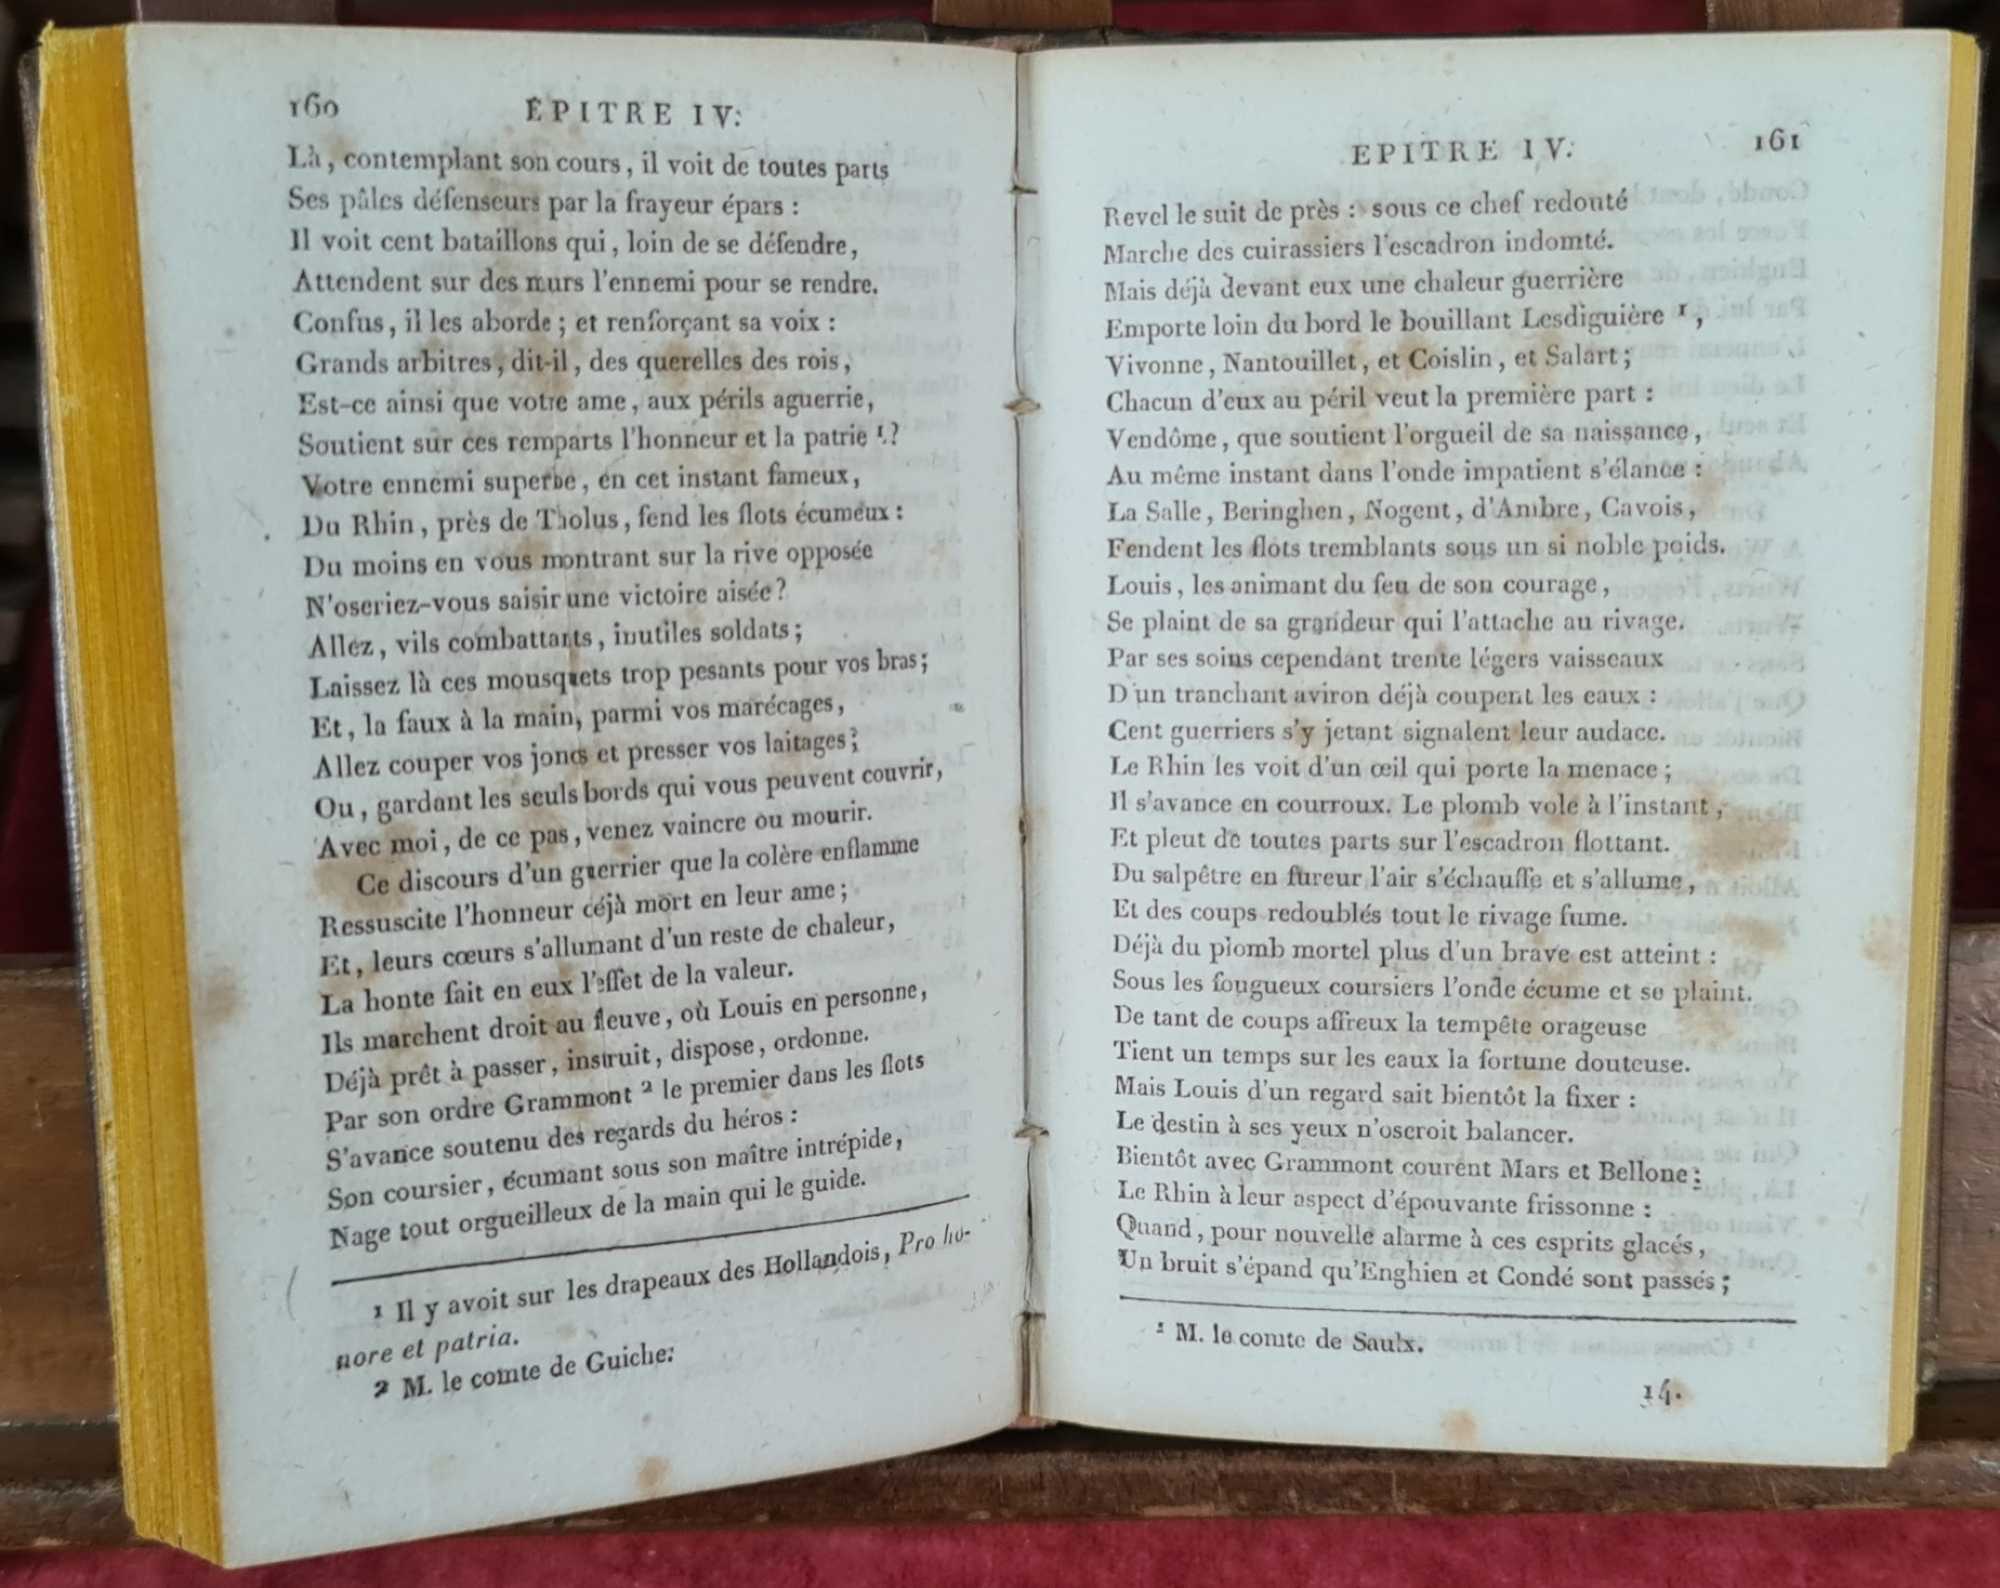 160
ÉPITRE IV.
Là, contemplant son cours, il voit de toutes parts
Ses pâles défenseurs par la frayeur épars :
Il voit cent bataillons qui, loin de se défendre,
Attendent sur des murs l'ennemi pour se rendre.
Confus, il les aborde ; et renforçant sa voix :
Grands arbitres, dit-il, des querelles des rois,
Est-ce ainsi que votre ame, aux périls aguerrie,
Soutient sur ces remparts l'honneur et la patrie 1 ?
Votre ennemi superbe, en cet instant fameux,
Du Rhin, près de Tholus, fend les flots écumeux :
Du moins en vous montrant sur la rive opposée
N'oseriez-vous saisir une victoire aisée ?
Allez, vils combattants, inutiles soldats ;
Laissez là ces mousquets trop pesants pour vos bras ;
Et, la faux à la main, parmi vos marécages,
Allez couper vos joncs et presser vos laitages ;
Ou, gardant les seuls bords qui vous peuvent couvrir,
Avec moi, de ce pas, venez vaincre ou mourir.
Ce discours d'un guerrier que la colère enflamme
Ressuscite l'honneur déjà mort en leur ame ;
Et, leurs cœurs s'allumant d'un reste de chaleur,
La honte fait en eux l'effet de la valeur.
Ils marchent droit au fleuve, où Louis en personne,
Déjà prêt à passer, instruit, dispose, ordonne.
Par son ordre Grammont 2 le premier dans les flots
S'avance soutenu des regards du héros :
Son coursier, écumant sous son maître intrépide,
Nage tout orgueilleux de la main qui le guide.
1 Il y avoit sur les drapeaux des Hollandois, Pro ho-
nore et patria.
2 M. le comte de Guiche.
EPITRE IV.
161
Revel le suit de près : sous ce chef redouté
Marche des cuirassiers l'escadron indomté.
Mais déjà devant eux une chaleur guerrière
Emporte loin du bord le bouillant Lesdiguière 1,
Vivonne, Nantouillet, et Coislin, et Salart ;
Chacun d'eux au péril veut la première part :
Vendôme, que soutient l'orgueil de sa naissance,
Au même instant dans l'onde impatient s'élance :
La Salle, Beringhen, Nogent, d'Ambre, Cavois,
Fendent les flots tremblants sous un si noble poids.
Louis, les animant du feu de son courage,
Se plaint de sa grandeur qui l'attache au rivage.
Par ses soins cependant trente légers vaisseaux
D'un tranchant aviron déjà coupent les eaux :
Cent guerriers s'y jetant signalent leur audace.
Le Rhin les voit d'un œil qui porte la menace ;
Il s'avance en courroux. Le plomb vole à l'instant,
Et pleut de toutes parts sur l'escadron flottant.
Du salpêtre en fureur l'air s'échauffe et s'allume,
Et des coups redoublés tout le rivage fume.
Déjà du plomb mortel plus d'un brave est atteint :
Sous les fougueux coursiers l'onde écume et se plaint.
De tant de coups affreux la tempête orageuse
Tient un temps sur les eaux la fortune douteuse.
Mais Louis d'un regard sait bientôt la fixer :
Le destin à ses yeux n'oseroit balancer.
Bientôt avec Grammont courent Mars et Bellone :
Le Rhin à leur aspect d'épouvante frissonne :
Quand, pour nouvelle alarme à ces esprits glacés,
Un bruit s'épand qu'Enghien et Condé sont passés ;
1 M. le comte de Saulx.
14.